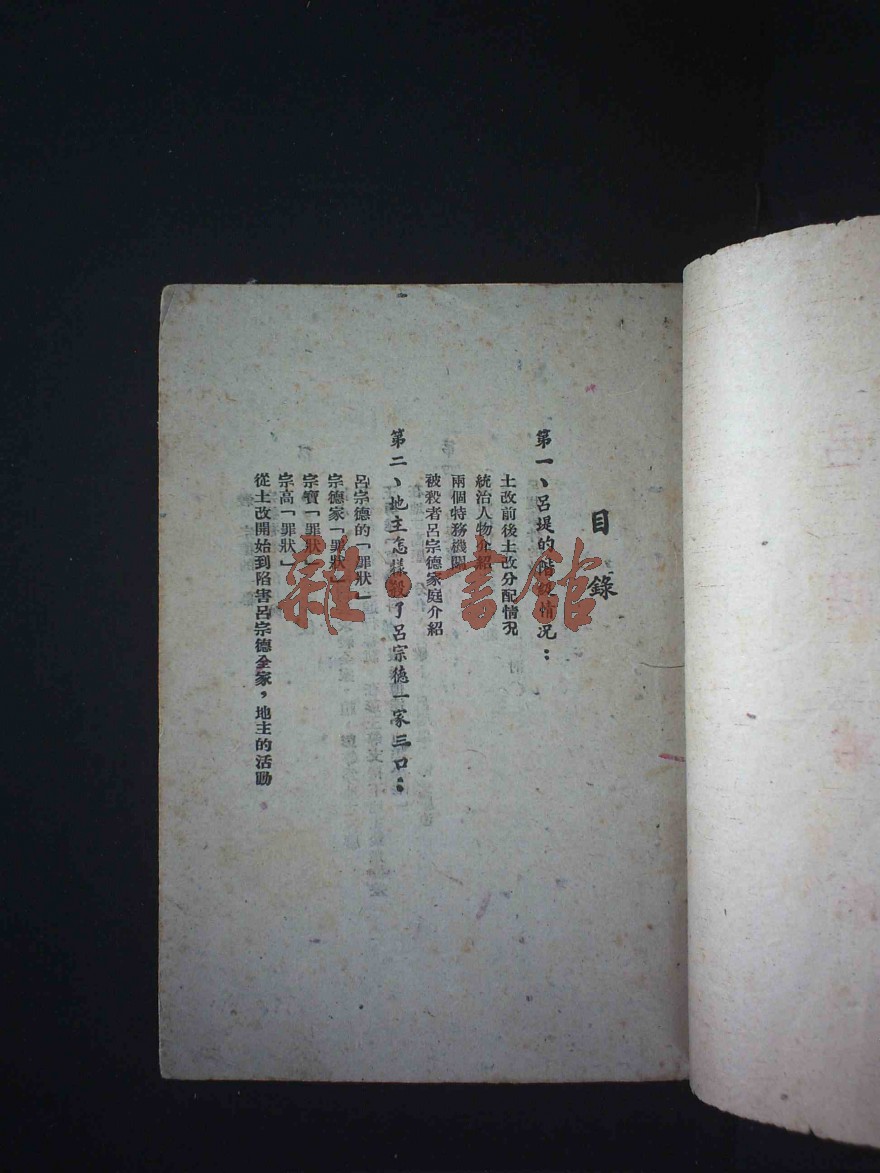 目錄
第一、呂堤的階級情況：
土改前後土改分配情況
統治人物介紹
兩個特務機關
被殺者呂宗德家庭介紹
第二、地主怎樣殺了呂宗德一家三口：
呂宗德的「罪狀」
宗德家「罪狀」
宗寶「罪狀」
宗高「罪狀」
從土改開始到陷害呂宗德全家，地主的活動
雜·書館